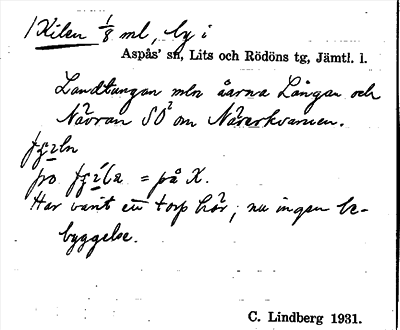 Kilen 1/8 ml, by i
Aspås' sn, Lits och Rödöns tg, Jämtl. l.
Landtungan mln åarna Långan och
Nävran SO om Näverkvarnen.
= på K.
Har varit ett torp här; nu ingen be-
byggelse.
C. Lindberg 1931.